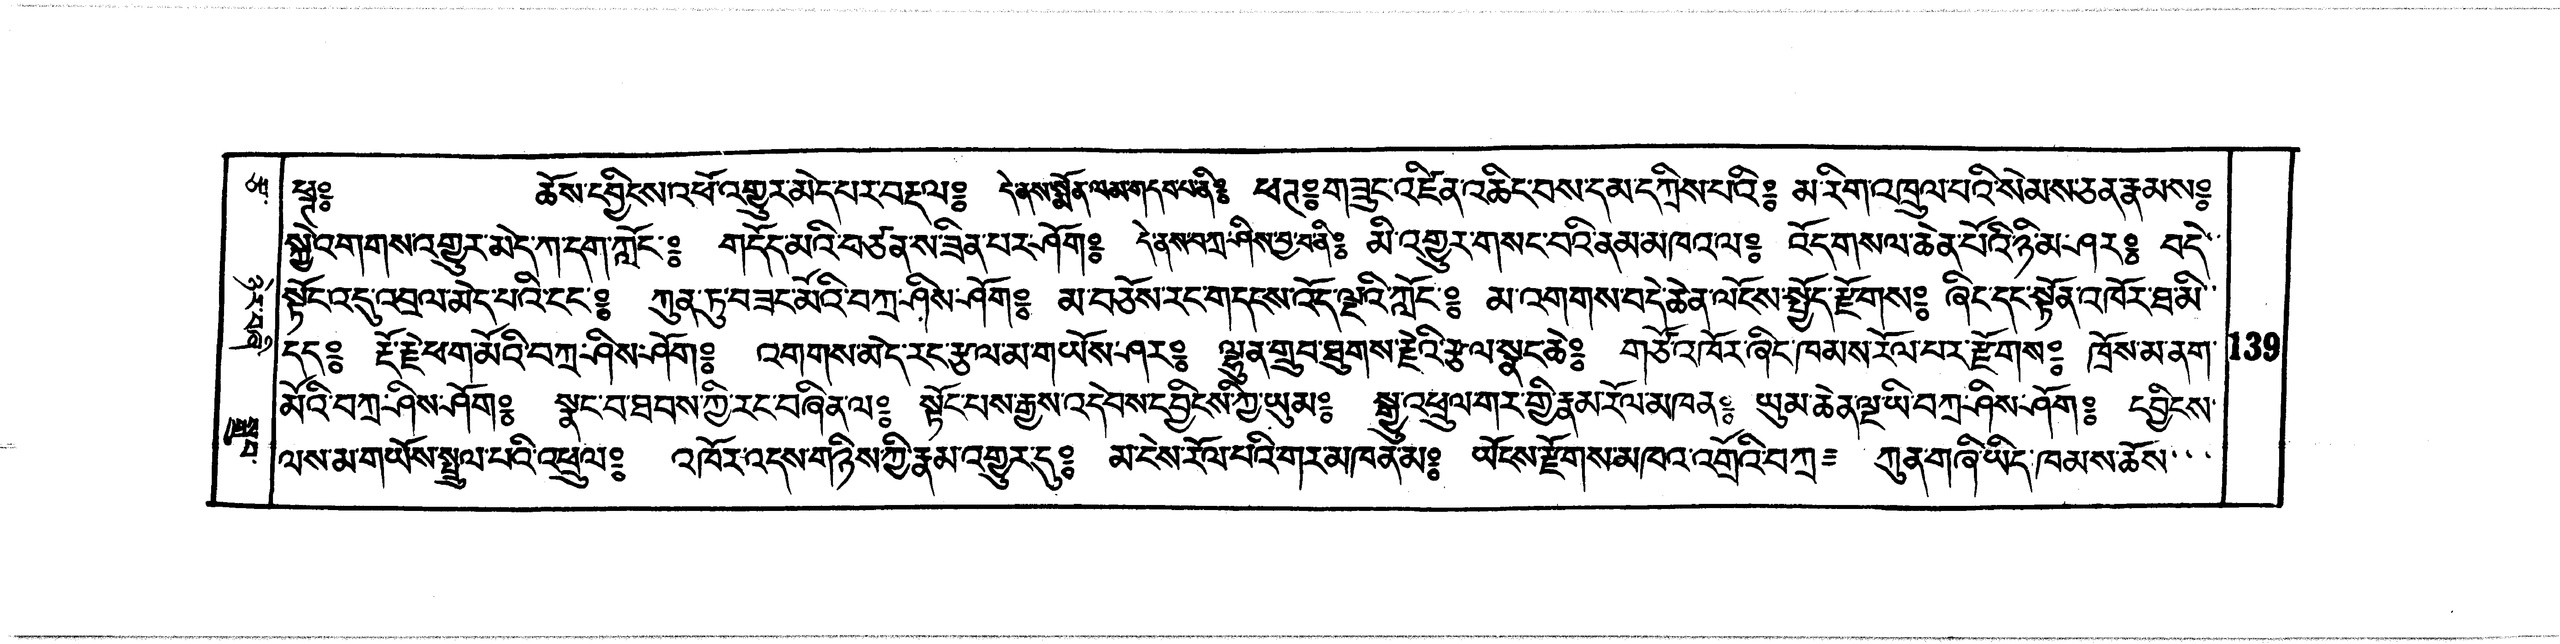 ཕཊ༔ ཆོས་དབྱིངས་འཕོ་འགྱུར་མེད་པར་བརྡལ༔ དེ་ནས་སྨོན་ལམ་གདབ་པ་ནི༔ ཕཊ༔ གཟུང་འཛིན་འཆིང་བས་དམ་དཀྲིས་པའི༔ མ་རིག་འཁྲུལ་པའི་སེམས་ཅན་རྣམས༔
སྐྱེ་འགགས་འགྱུར་མེད་ཀ་དག་ཀློང་༔ གདོད་མའི་བཙན་ས་ཟིན་པར་ཤོག༔ དེ་ནས་བཀྲ་ཤིས་བྱ་བ་ནི༔ མི་འགྱུར་གསང་བའི་ནམ་མཁའ་ལ༔ འོད་གསལ་ཆེན་པོའི་ཉི་མ་ཤར༔ བདེ་
སྟོང་འདུ་འབྲལ་མེད་པའི་ངང་༔ ཀུན་ཏུ་བཟང་མོའི་བཀྲ་ཤིས་ཤོག༔ མ་བཅོས་རང་གདངས་འོད་ལྔའི་ཀློང་༔ མ་འགགས་བདེ་ཆེན་ལོངས་སྤྱོད་རྫོགས༔ ཞིང་དང་སྟོན་འཁོར་ཐ་མི་
དད༔ རྡོ་རྗེ་ཕག་མོའི་བཀྲ་ཤིས་ཤོག༔ འགགས་མེད་རང་རྩལ་མ་གཡོས་ཤར༔ ལྷུན་གྲུབ་ཐུགས་རྗེའི་རྩལ་སྣང་ཆེ༔ གཙོ་འཁོར་ཞིང་ཁམས་རོལ་པར་རྫོགས༔ ཁྲོས་མ་ནག་
མོའི་བཀྲ་ཤིས་ཤོག༔ སྣང་བ་ཐབས་ཀྱི་རང་བཞིན་ལ༔ སྟོང་པས་རྒྱས་འདེབས་དབྱིངས་ཀྱི་ཡུམ༔ སྒྱུ་འཕྲུལ་གར་གྱི་རྣམ་རོལ་མཁན༔ ཡུམ་ཆེན་ལྔ་ཡི་བཀྲ་ཤིས་ཤོག༔ དབྱིངས་
ལས་མ་གཡོས་སྤྲུལ་པའི་འཕྲུལ༔ འཁོར་འདས་གཉིས་ཀྱི་རྣམ་འགྱུར་དུ༔ མ་ངེས་རོལ་པའི་གར་མཁན་མ༔ ཡོངས་རྫོགས་མཁའ་འགྲོའི་བཀྲ༔ ཀུན་གཞི་ཡིད་ཁམས་ཆོས་
139